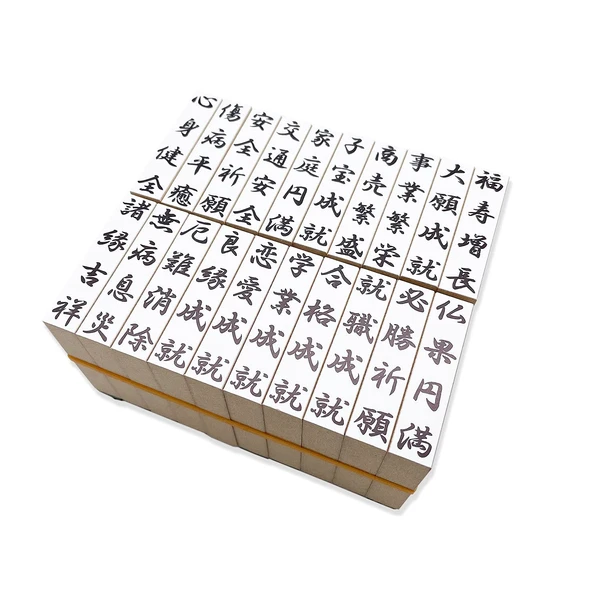 福寿増長
大願成就
事業繁栄
商売繁盛
子宝成就
家庭円満
交通安全
安全祈願
傷病平癒
心身健全
仏果円満
必勝祈願
就職成就
合格成就
学業成就
恋愛成就
良縁成就
厄難消除
無病息災
諸縁吉祥